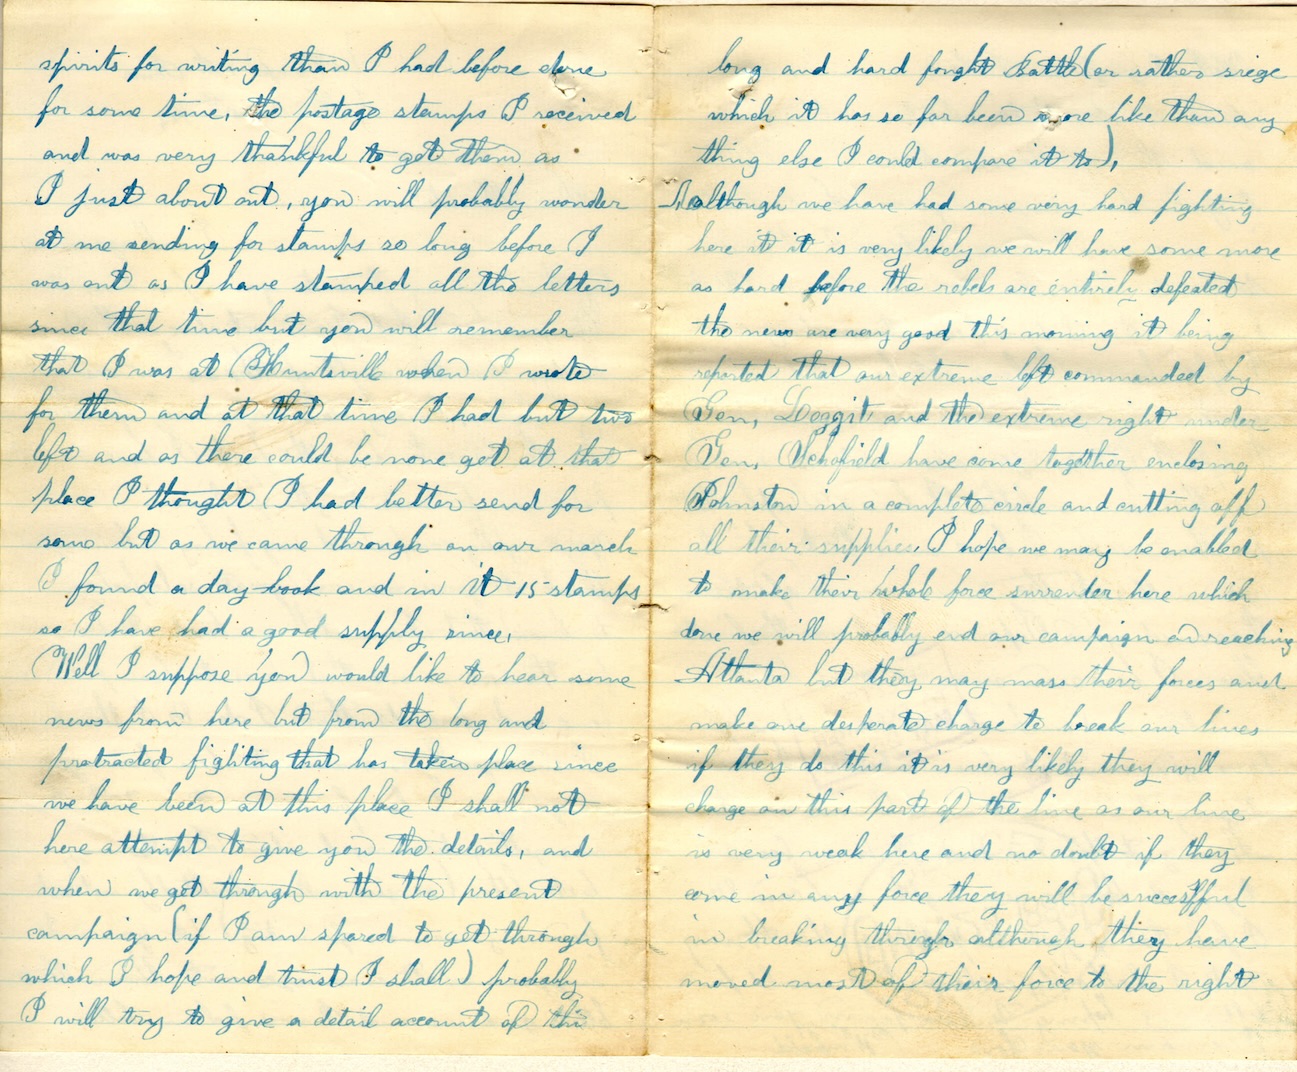 spirits for writing than I had before done
for some time, the postage stamps I received
and was very thankful to get them as
I just about out, you will probably wonder
at me sending for stamps so long before I
was out as I have stamped all the letters
since that time but you will remember
that I was at Huntsville when I wrote
for them and at that time I had but two
left and as there could be none got at that
place I thought I had better send for
some but as we came through on our march
I found a day-book and in it 15 stamps
so I have had a good supply since,
Well I suppose you would like to hear some
news from here but from the long and
protracted fighting that has taken place since
we have been at this place I shall not
here attempt to give you the details, and
when we get through with the present
campaign (if I am spared to get through
which I hope and trust I shall) probably
I will try to give a detail account of this
long and hard fought Battle (or rather siege
which it has so far been more like than any
thing else I could compare it to),
although we have had some very hard fighting
here it it is very likely we will have some more
as hard before the rebels are entirely defeated
the news are very good this morning it being
reported that our extreme left commanded by
Gen, Doggit and the extreme right under
Gen, Schofield have come together enclosing
Johnston in a complete circle and cutting off
all their supplies, I hope we may be enabled
to make their whole force surrender here which
done we will probably end our campaign on reaching
Atlanta but they may mass their forces and
make one desperate charge to break our lines
if they do this it is very likely they will
charge on this part of the line as our line
is very weak here and no doubt if they
come in any force they will be successful
in breaking through although they have
moved most of their force to the right